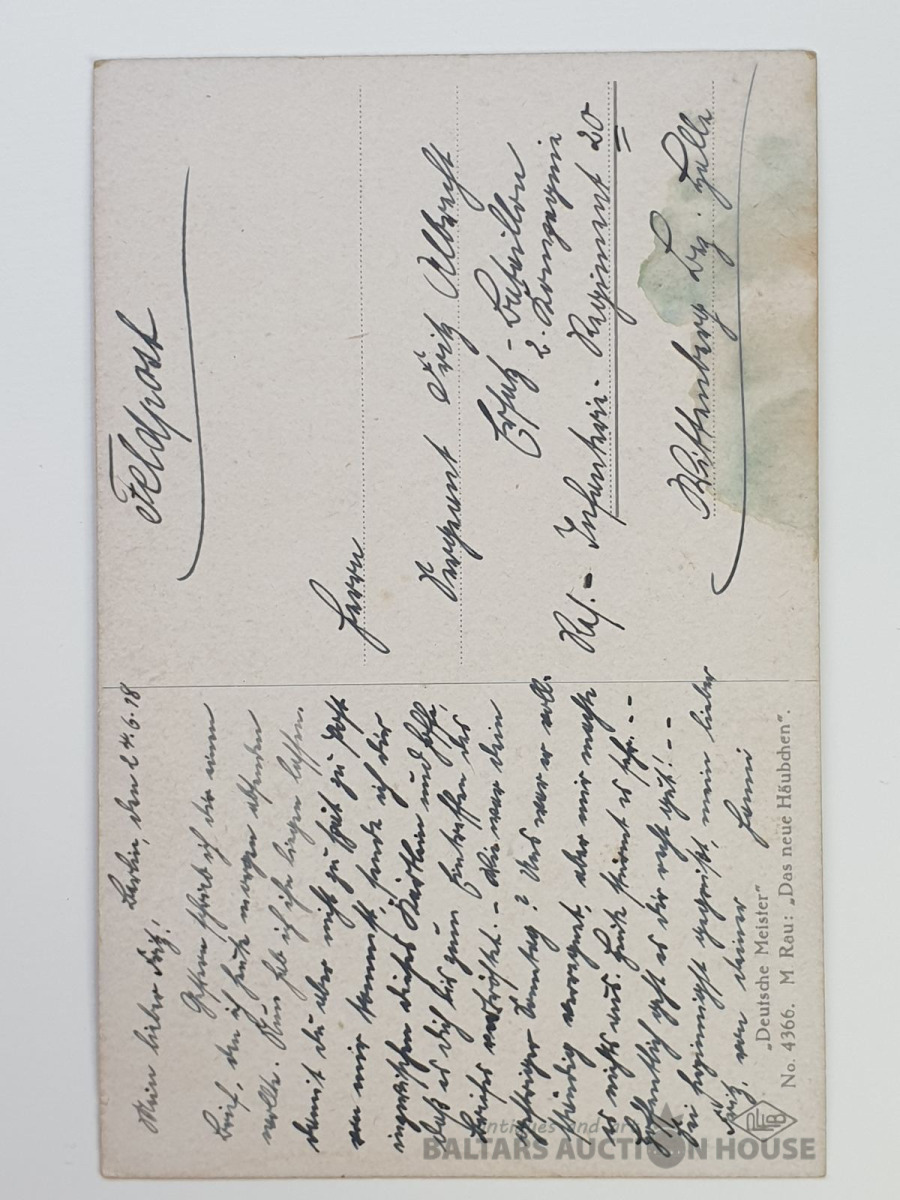 Feldpost
Herrn
Sergeant Fritz Albrecht
Ersatz-Bataillon
2. Kompagnie
Res.-Infanterie-Regiment 20
Wittenberg Bez. Halle
Berlin, den 24.6.18
Mein lieber Fritz!
Gestern schrieb ich dir einen
Brief, den ich heute morgen absenden
wollte. Nun hab ich ihn liegen lassen.
Damit du aber nicht zu Zeit zu Post
von mir kommst, sende ich dir
inzwischen dieses Kärtlein und hoffe,
daß es dich bis zum Eintreffen des
Briefes vertröstet. - Wie war dein
gestriger Sonntag? Uns war er voll-
ständig verregnet, aber mir machte
es nichts aus. Heute stürmt es sehr. --
Hoffentlich geht es dir recht gut! --
Sei herzinnigst gegrüßt, mein lieber
Fritz, von deiner Hanni
„Deutsche Meister“
No. 4366. M Rau: „Das neue Häubchen“.
PFB
Antiques and art
BALTARS AUCTION HOUSE